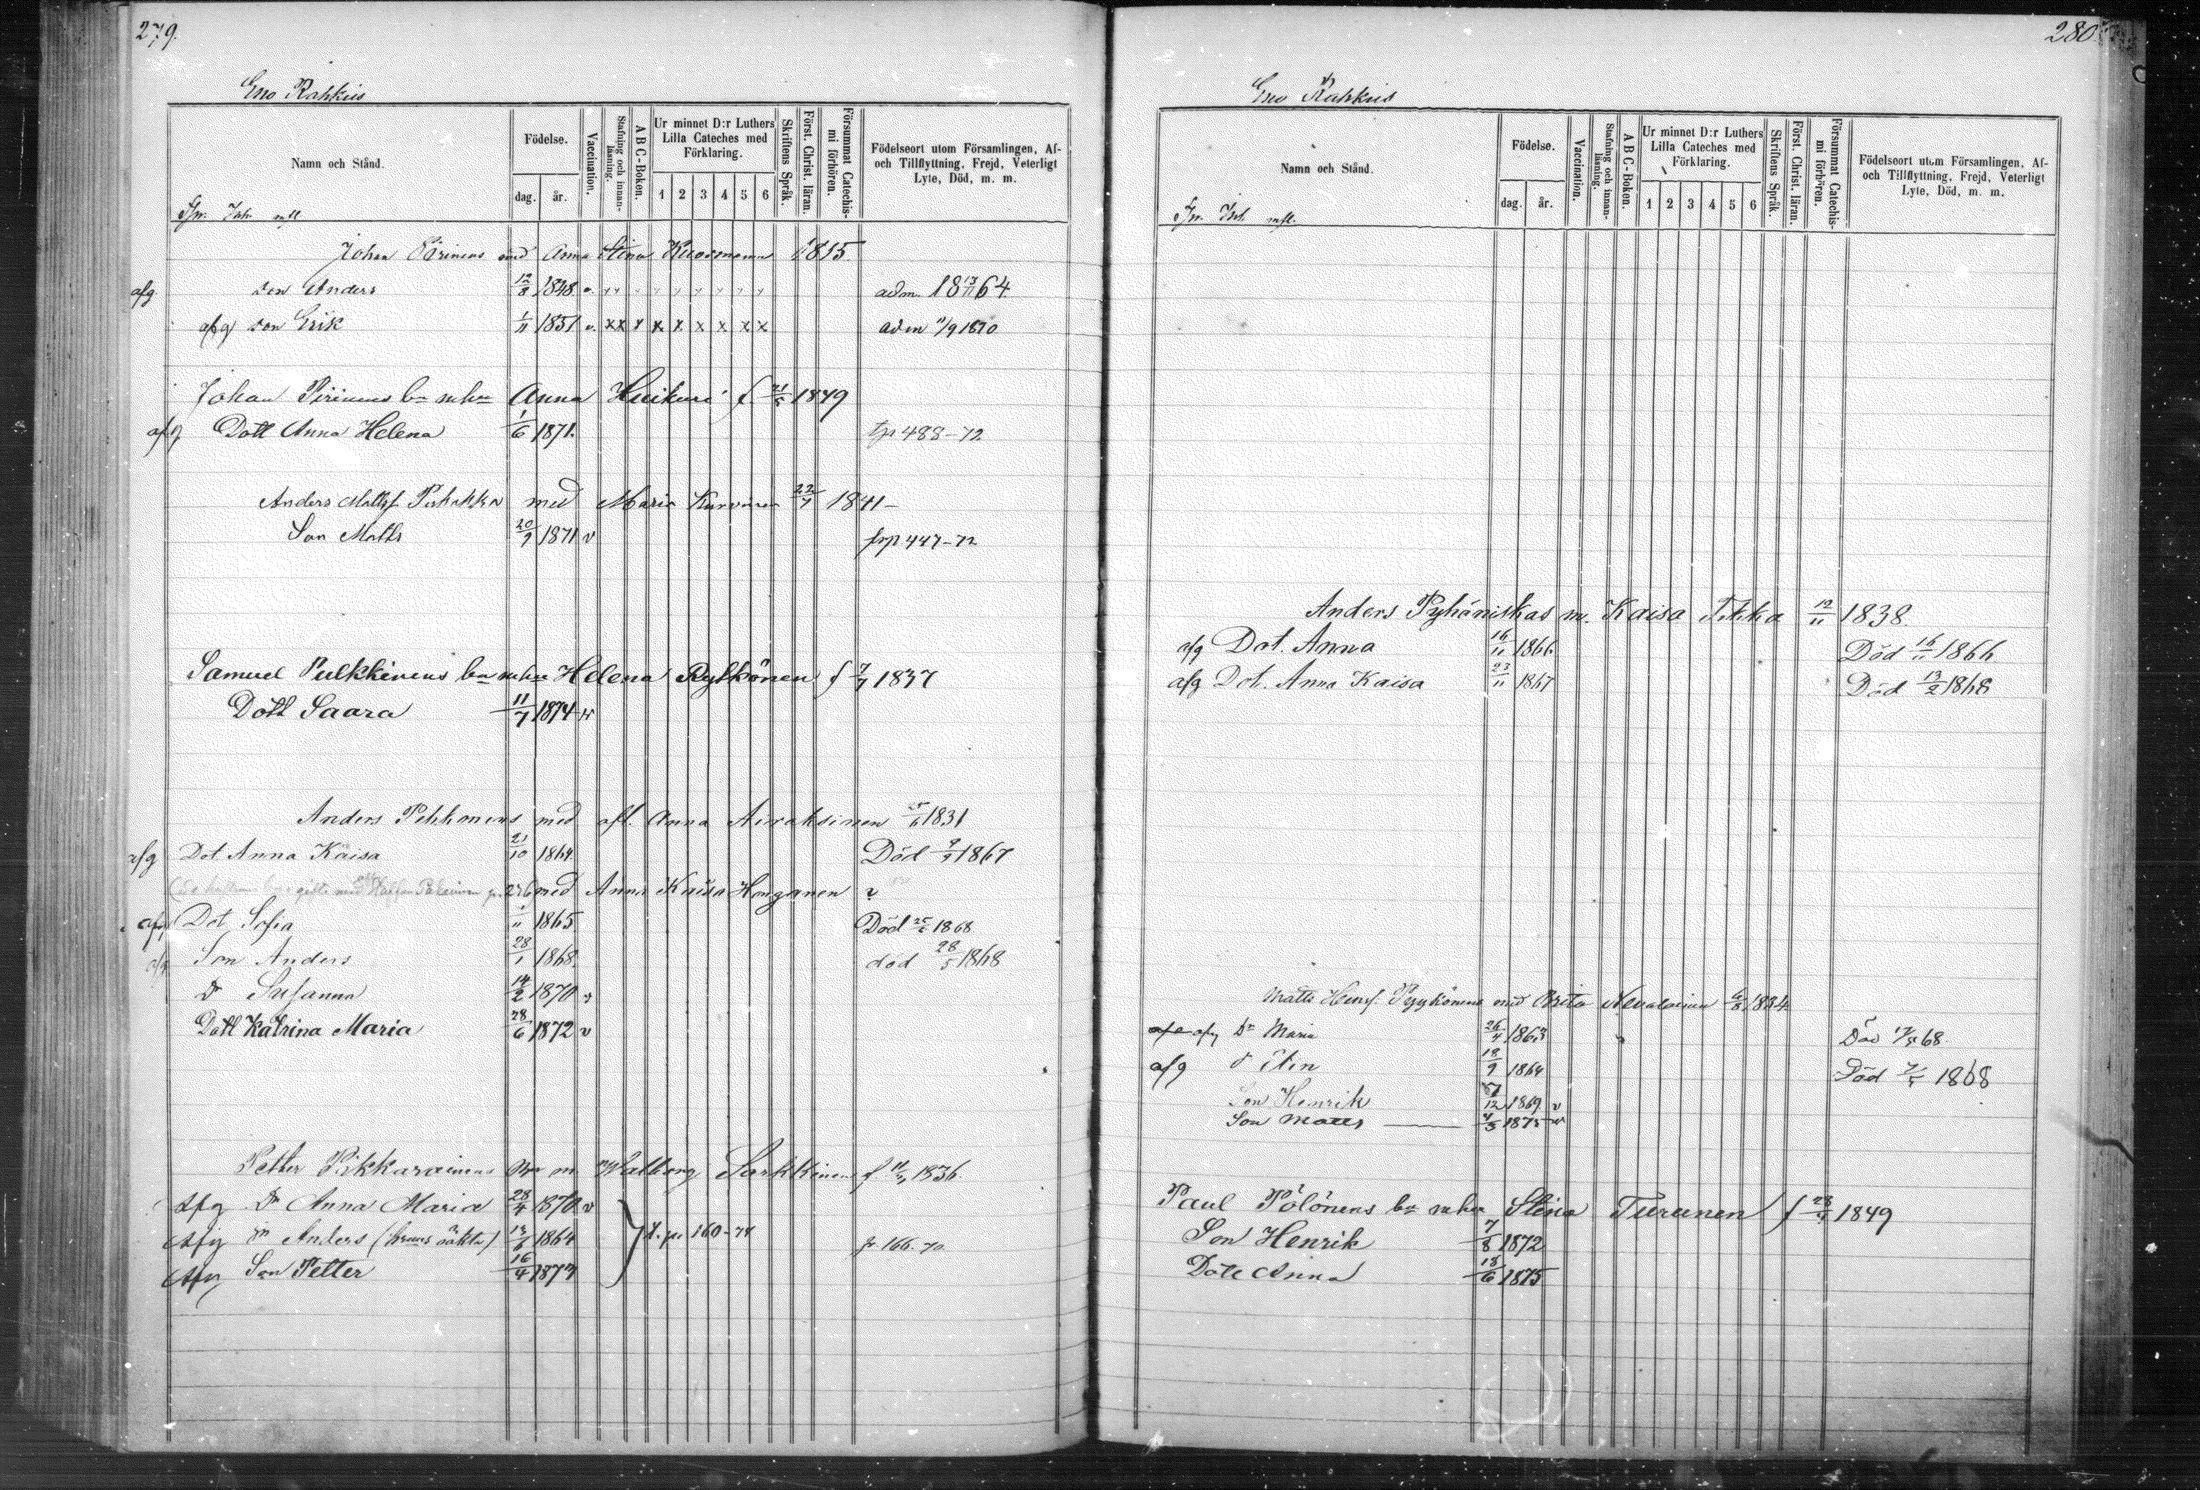 279.
Eno Rahkiis
Namn och Stånd.
Födelse.
dag. år.
Vaccination.
Stafning och innanläsning.
ABC-Boken.
Ur minnet D:r Luthers Lilla Cateches med Förklaring.
1 2 3 4 5 6
Skriftens Språk.
Först. Christ. läran.
Försummat Catechismi förhören.
Födelseort utom Församlingen, Af- och Tillflyttning, Frejd, Veterligt Lyte, Död, m. m.
Johan Pirinens med Anna Stina Kuosmanen 1815.
afg son Anders 12/8 1848. v. adm. 18 13/11 64
afg son Erik 1/11 1851 v. xx x x x x x x x adm 11/9 1870
Johan Pirinens b- m h- Anna Huikuri f. 21/5 1849
afg Dott Anna Helena 1/6 1871. tp 488-72
Anders Mattsf. med Maria Kurvinen 22/7 1841-
Son Matts 20/9 1871 v frp 447-72
Samuel Pulkkinens b- m h- Helena Rylkönen f 7/7 1837
Dött Saara 11/7 1874 v
Anders Pehkonens med afl. Anna Airaksinen 1831
afg Dot Anna Kaisa 21/10 1864. Död 9/9 1867
gifta med p. 276 med Anna Kaisa Honganen
afg Dot Sofia 1/11 1865. Död 25/5 1868
afg Son Anders 28/1 1868. död 28/5 1868
Dr Susanna 14/2 1870 v
Dott Katrina Maria 28/6 1872 v
Petter Pikkarainens m Walborg Sarkkinen f 1836
Afg Dr Anna Maria 28/4 1870 v
Afg Sn Anders 13/6 1864 } t. p. 160-74 fr 166. 70.
Afg Son Petter 16/4 1873
280
Eno Rahkiis
Namn och Stånd.
Födelse.
dag. år.
Vaccination.
Stafning och innanläsning.
ABC-Boken.
Ur minnet D:r Luthers Lilla Cateches med Förklaring.
1 2 3 4 5 6
Skriftens Språk.
Först. Christ. läran.
Försummat Catechismi förhören.
Födelseort utom Församlingen, Af- och Tillflyttning, Frejd, Veterligt Lyte, Död, m. m.
Anders Pyhöniskas m. Kaisa Tikka 12/11 1838.
afg Dot. Anna 16/11 1866 Död 16/11 1866
afg Dot. Anna Kaisa 23/11 1867 Död 13/2 1868
Matts Henrs. Pyykönens med Brita Nevalainen 1834.
afg Dr Maria 26/4 1863 Död 68.
afg d Elin 18/9 1864 Död 1868
Son Henrik 12 1869 v
Son Matts 1875 v
Paul Pölönens b- m h- Stina Turunen f 1849
Son Henrik 7/8 1872
Dött Anna 18/6 1875